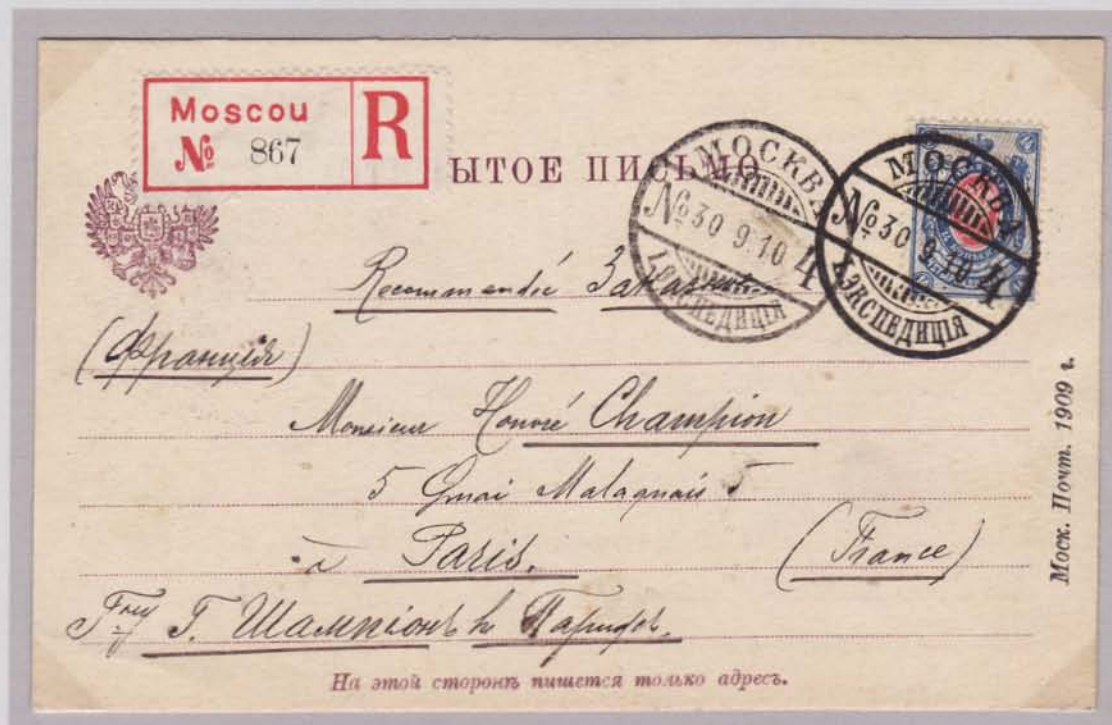 Moscou
№ 867
R
ЫТОЕ ПИСЬМО
МОСКВА
№ 30 9.10 4
1. ЭКСПЕДИЦІЯ
МОСКВА
№ 30 9 10 4
1. ЭКСПЕДИЦІЯ
Recommandée Заказное
(Франція)
Monsieur Honoré Champion
5 Quai Malaquais 5
à Paris.
(France)
Г-ну Г. Шампіонъ въ Парижѣ.
На этой сторонѣ пишется только адресъ.
Моск. Почт. 1909 г.